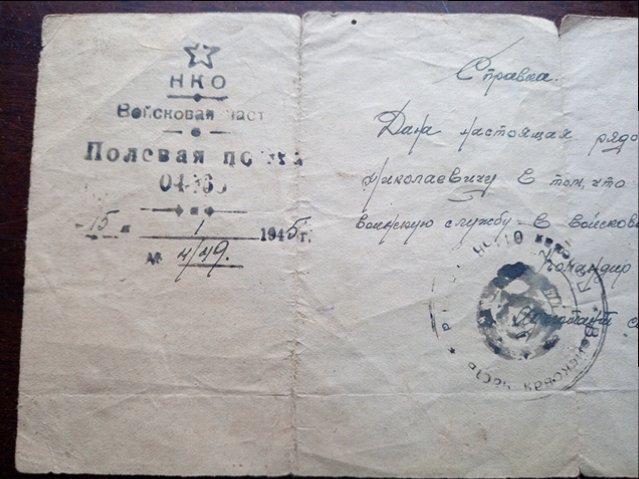 НКО
Войсковая част
Полевая
15 " 1 1945 г.
№ 4/49.
Справка.
Дана настоящая рядо
Николаевичу в том, что
воинскую службу в войсково
Командир
Войсковая часть